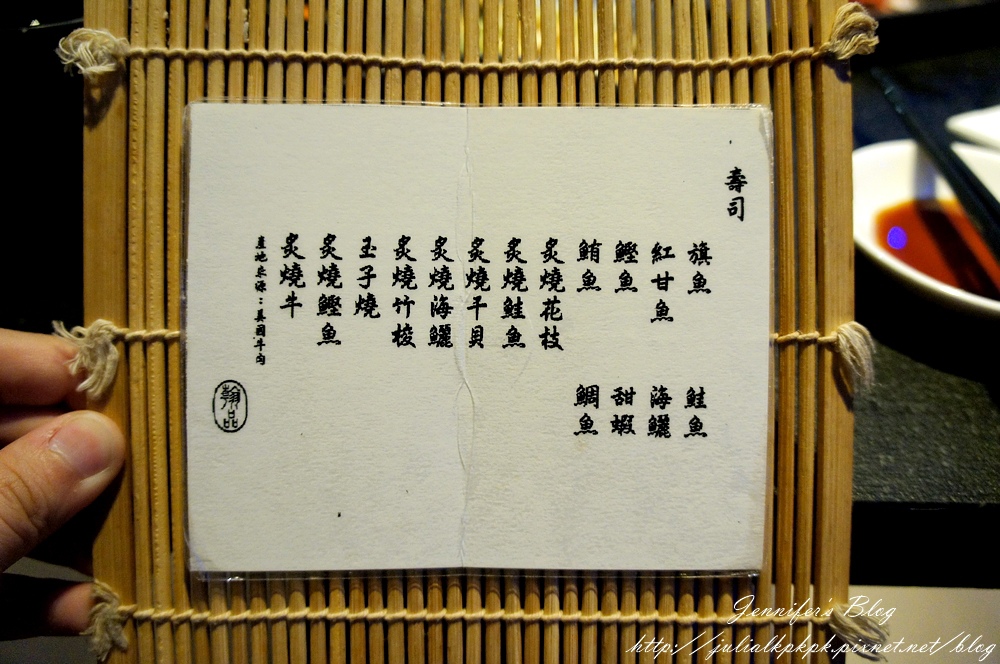 壽司
旗魚
鮭魚
紅甘魚
海鱺
鰹魚
甜蝦
鮪魚
鯛魚
炙燒花枝
炙燒鮭魚
炙燒干貝
炙燒海鱺
炙燒竹梭
玉子燒
炙燒鰹魚
炙燒牛
產地來源：美國牛肉
翰品
Jennifer's Blog
http://julialkpkpk.pixnet.net/blog